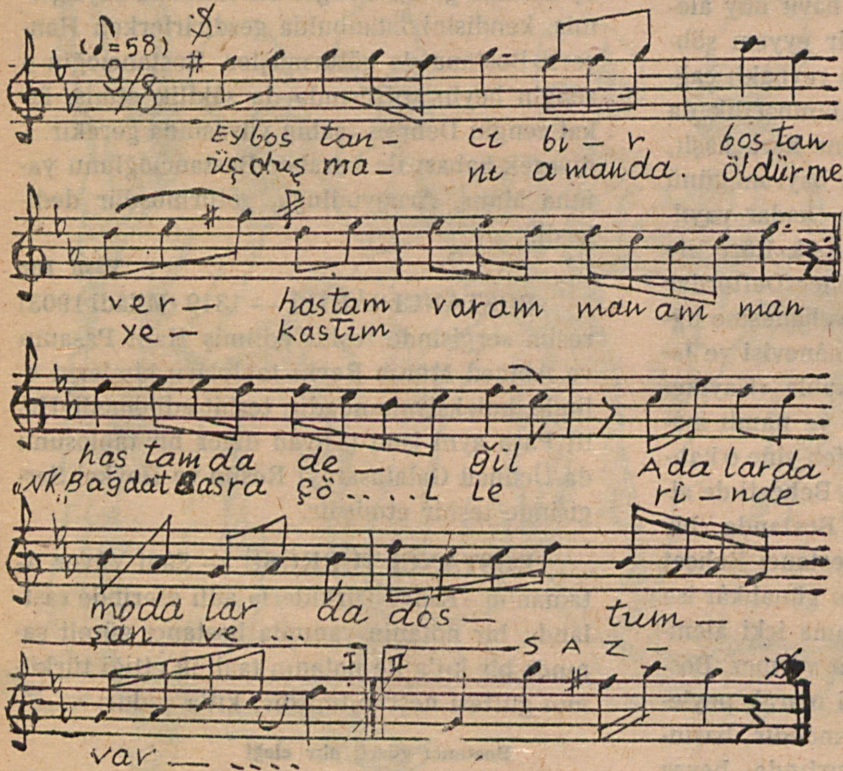 (♪=58)
9/8
Ey bos tan- cı bi - r bos tan
üç düş ma - nı amanda. öldürme
ver - hastam varam man am man
ye - kastım
has tam da de - ğil Ada larda
"NK." Bağdat Basra çö.....l le ri - nde
moda lar da dos - tum -
şan ve
I II - SAZ -
var - ....